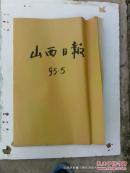 山西日報
95.5